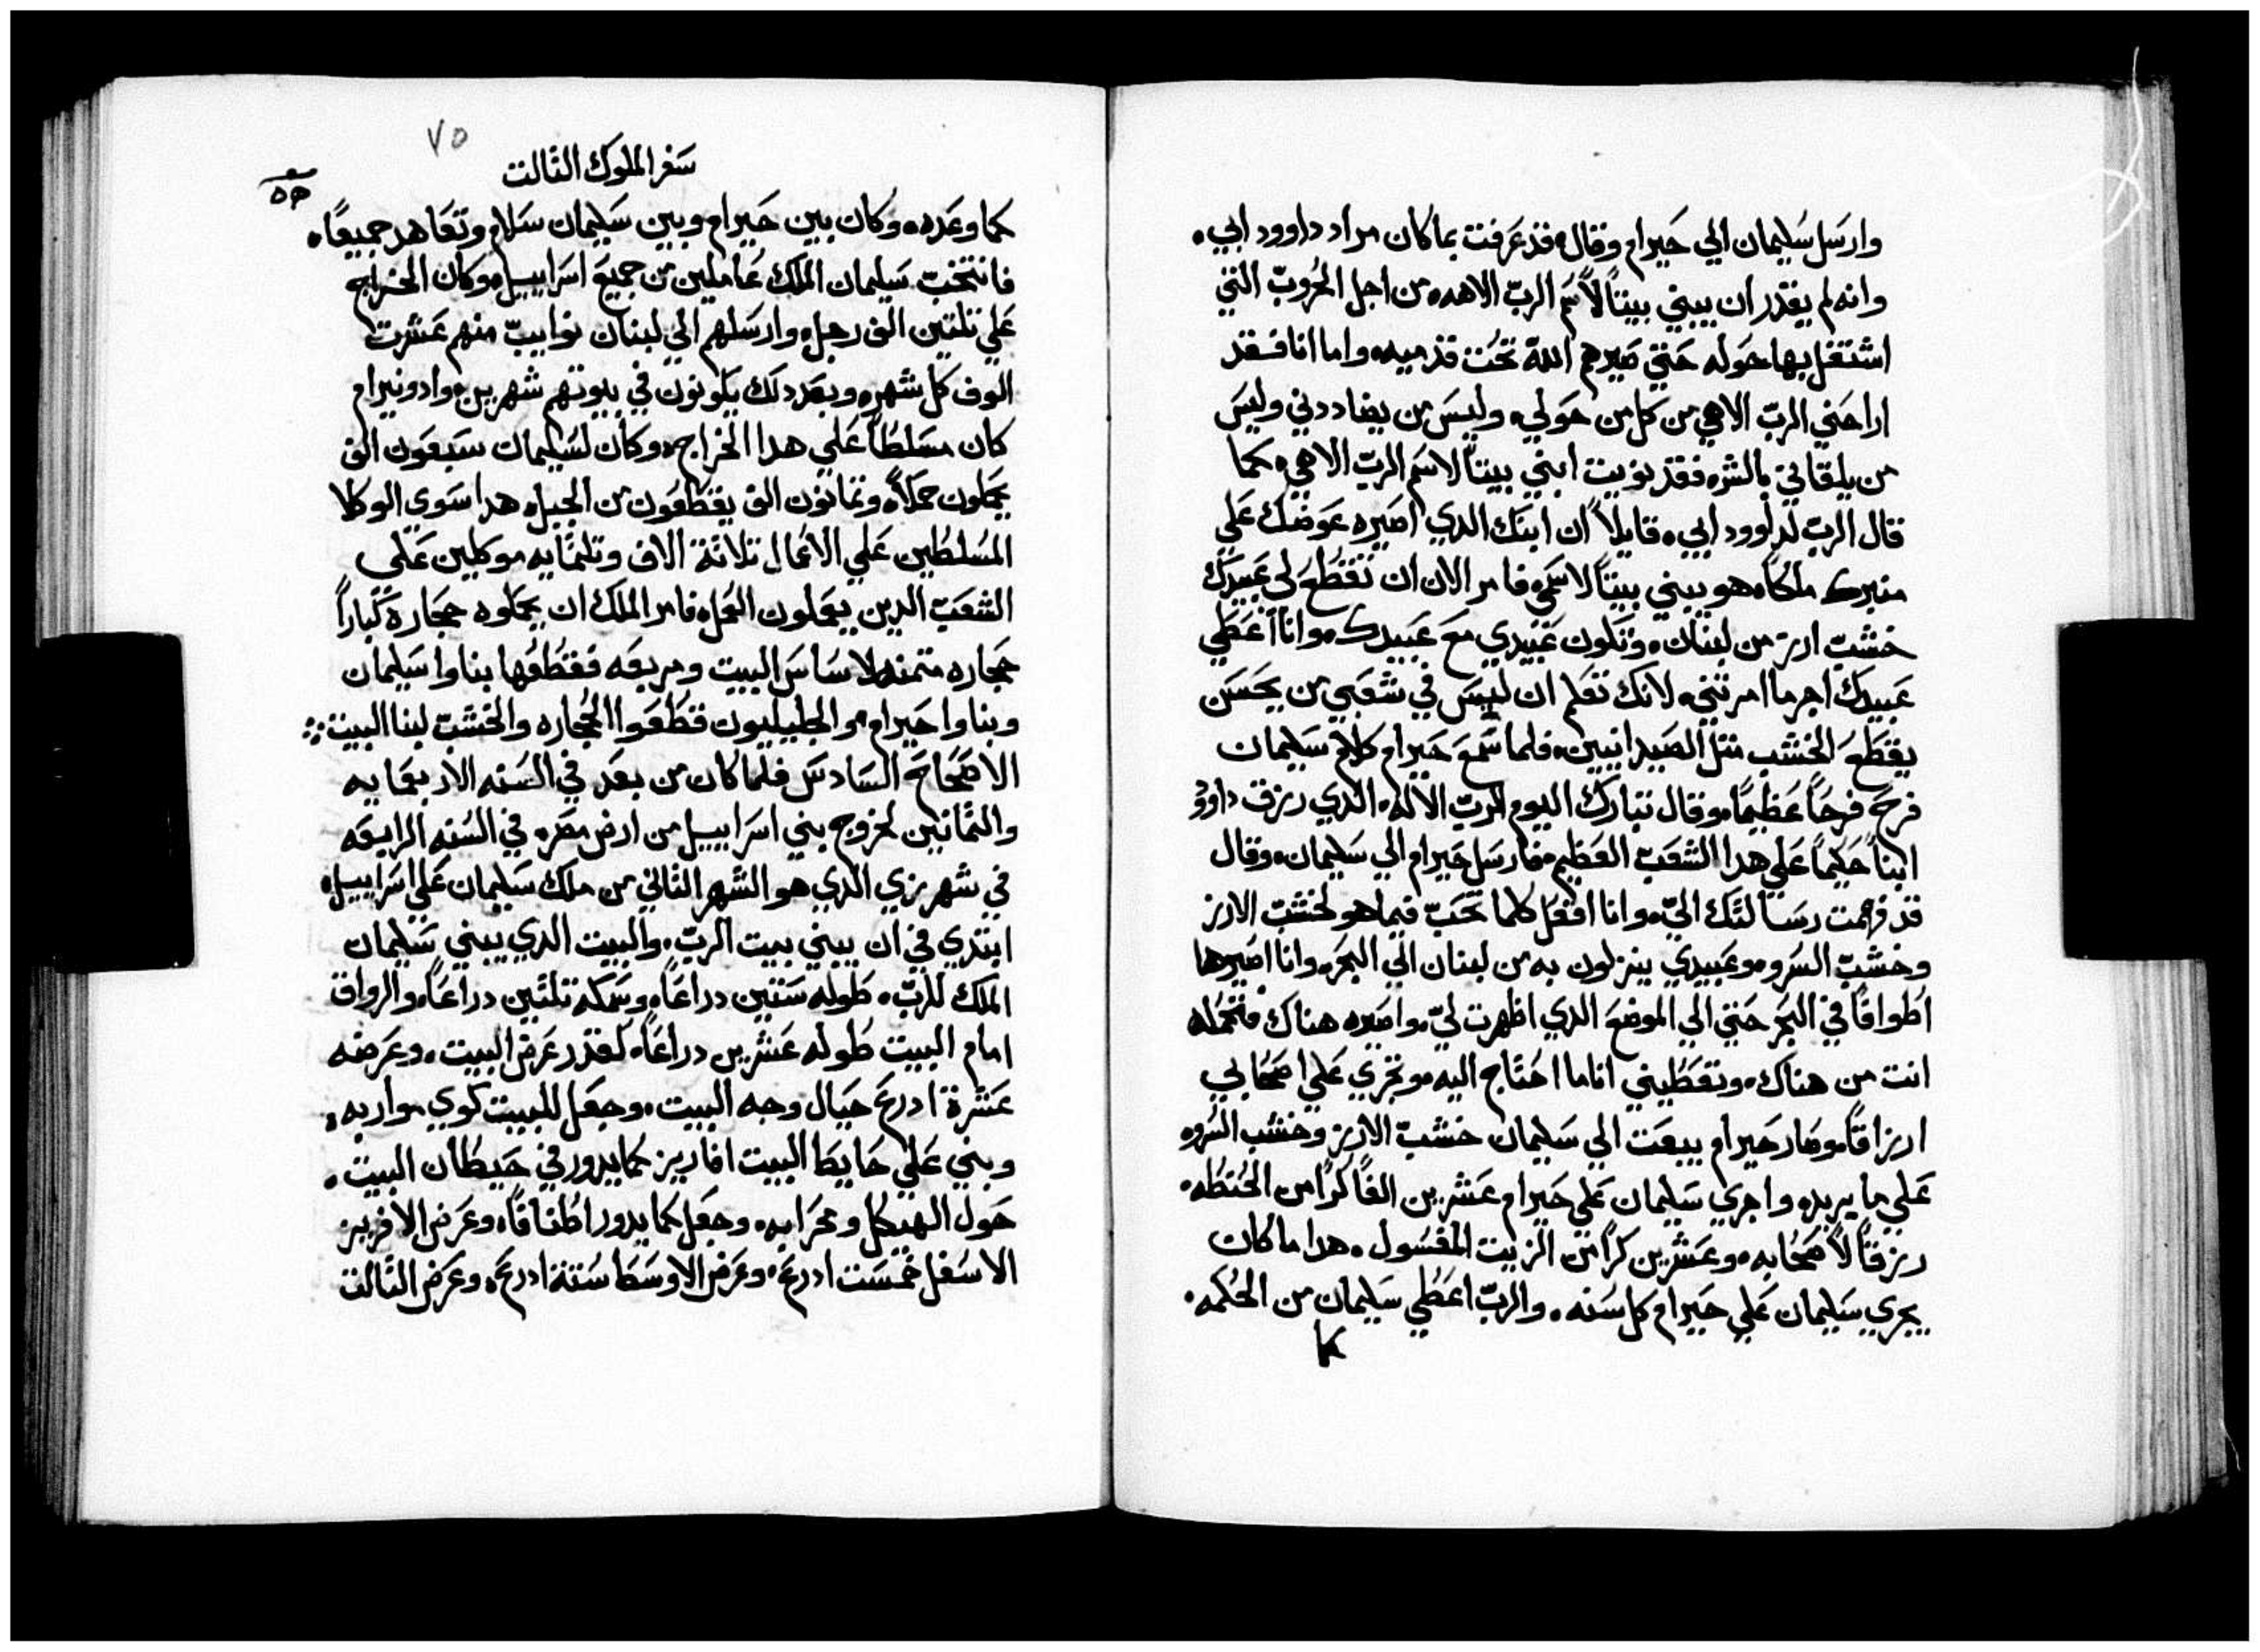 وارسل سليمان الي حيرام وقال قد عرفت بما كان مراد داوود ابي.
وانه لم يقدر ان يبني بيتاً لاسم الرب الاهه من اجل الحروب التي
اشتغل بها حوله حتي صيرهم الله تحت قدميه. واما انا فقد
اراحني الرب الاهي من كل من حولي. وليس من يضاددني وليس
من يلقاني بالشر. فقد نويت ابني بيتاً لاسم الرب الاهي. كما
قال الرب لداوود ابي. قايلاً ان ابنك الدي اصيره عوضك علي
منبرك ملكاً. هو يبني بيتاً لاسمي. فامر الان ان تقطع لي عبيدك
خشب ارز من لبنان. وتكون عبيدي مع عبيدك. وانا اعطي
عبيدك اجر ما امرتني. لانك تعلم ان ليس في شعبي من يحسن
يقطع الخشب متل الصيدانيين. فلما سمع حيرام كلام سليمان
فرح فرحاً عظيماً. وقال تبارك اليوم الرب الاله. الدي رزق داوود
ابناً حكيماً علي هدا الشعب العظيم. فارسل حيرام الي سليمان. وقال
قد فهمت رسالتك الي. وانا افعل كلما تحب فيما هو لخشب الارز
وخشب السرو. وعبيدي ينزلون به من لبنان الي البحر. وانا اصيرها
اطوافاً في البحر حتي الي الموضع الدي اظهرت لي. واصيره هناك فتحمله
انت من هناك. وتعطيني اناما احتاج اليه. وتجري علي اصحابي
ارزاقاً. وصار حيرام يبعت الي سليمان خشب الارز وخشب السرو.
علي ما يريد. واجري سليمان علي حيرام عشرين الفاً كراً من الحنطه.
رزقاً لاصحابه. وعشرين كراً من الزيت المغسول. هدا ما كان
يجري سليمان علي حيرام كل سنه. والرب اعطي سليمان من الحكمه.
كما
٧٥
سفر الملوك التالت
كما وعده. وكان بين حيرام وبين سليمان سلام وتعاهد جميعاً.
فانتخب سليمان الملك عاملين من جميع اسراييل. وكان الخراج
علي تلتين الف رجل. وارسلهم الي لبنان نواييب منهم عشرت
الوف كل شهر. وبعد دلك يكونون في بيوتهم شهرين. وادونيرام
كان مسلطاً علي هدا الخراج. وكان لسليمان سبعون الف
يحملون حملاً. وتمانون الف يقطعون من الجبل. هدا سوي الوكلا
المسلطين علي الاعمال تلاتة الاف وتلتمايه موكلين علي
الشعب الدين يعملون العمل. فامر الملك ان يحملوه حجارة كباراً
حجاره متمنه لاساس البيت ومربعه فقطعها بناوا سليمان
وبناوا حيرام. والجليليون قطعوا الحجاره والخشب لبنا البيت
الاصحاح السادس فلما كان من بعد في السنه الاربعمايه
والتمانين لخروج بني اسراييل من ارض مصر. في السنه الرابعه
في شهر زي الدي هو الشهر التاني من ملك سليمان علي اسراييل.
ابتدي في ان يبني بيت الرب. والبيت الدي يبني سليمان
الملك للرب. طوله ستين دراعاً. وسمكه تلتين دراعاً. والرواق
امام البيت طوله عشرين دراعاً. لقدر عرض البيت. وعرضه
عشرة ادرع حيال وجه البيت. وجعل للبيت كوي مواربه.
وبني علي حايط البيت افاريز كما يدور في حيطان البيت.
حول الهيكل ومحرابه. وجعل كما يدور اطنافاً. وعرض الافريز
الاسفل خمست ادرع. وعرض الاوسط ستة ادرع. وعرض التالت